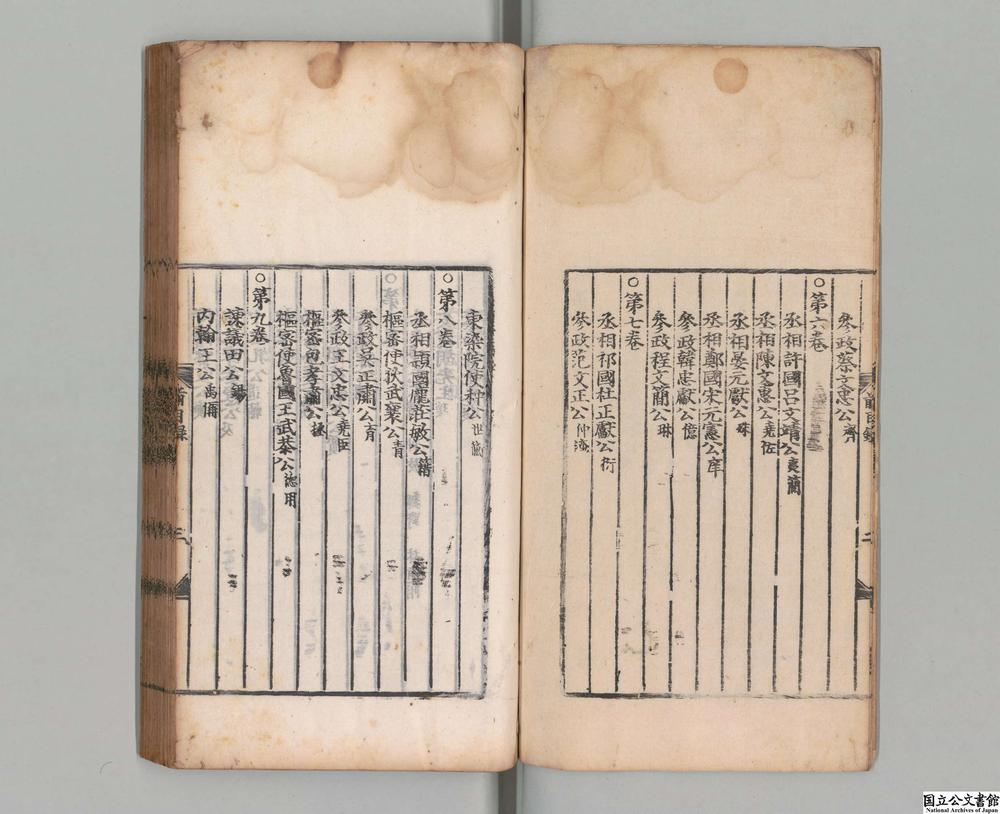 參政蔡文惠公齊
○第六卷
丞相許國呂文靖公夷簡
丞相陳文惠公堯佐
丞相晏元獻公殊
丞相鄭國宋元憲公庠
參政韓忠獻公億
參政程文簡公琳
○第七卷
丞相祁國杜正獻公衍
參政范文正公仲淹
前目錄
二
東染院使种公世衡
○第八卷
丞相潁國龐莊敏公籍
樞密使狄武襄公青
參政吳正肅公育
參政王文忠公堯臣
樞密包孝肅公拯
樞密使魯國王武恭公德用
○第九卷
諫議田公錫
內翰王公禹偁
前目錄
三
国立公文書館
National Archives of Japan